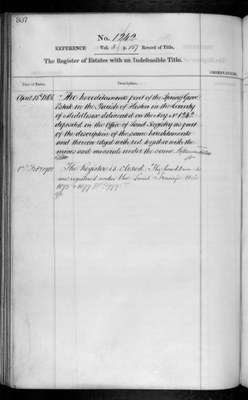 307
No. 1242
REFERENCE Vol. p. 157 Record of Title.
The Register of Estates with an Indefeasible Title.
Date of Entry. Description. OBSERVATIONS.
April 18th 1866 The hereditaments part of the Spring Grove
Estate in the Parish of Heston in the County
of Middlesex delineated on the Map No 1242
deposited in the Office of Land Registry as part
of the description of the same hereditaments
and thereon edged with red, together with the
mines and minerals under the same.
The Register is closed. The hereditaments
are registered under the Land Transfer Acts
1875 & 1897